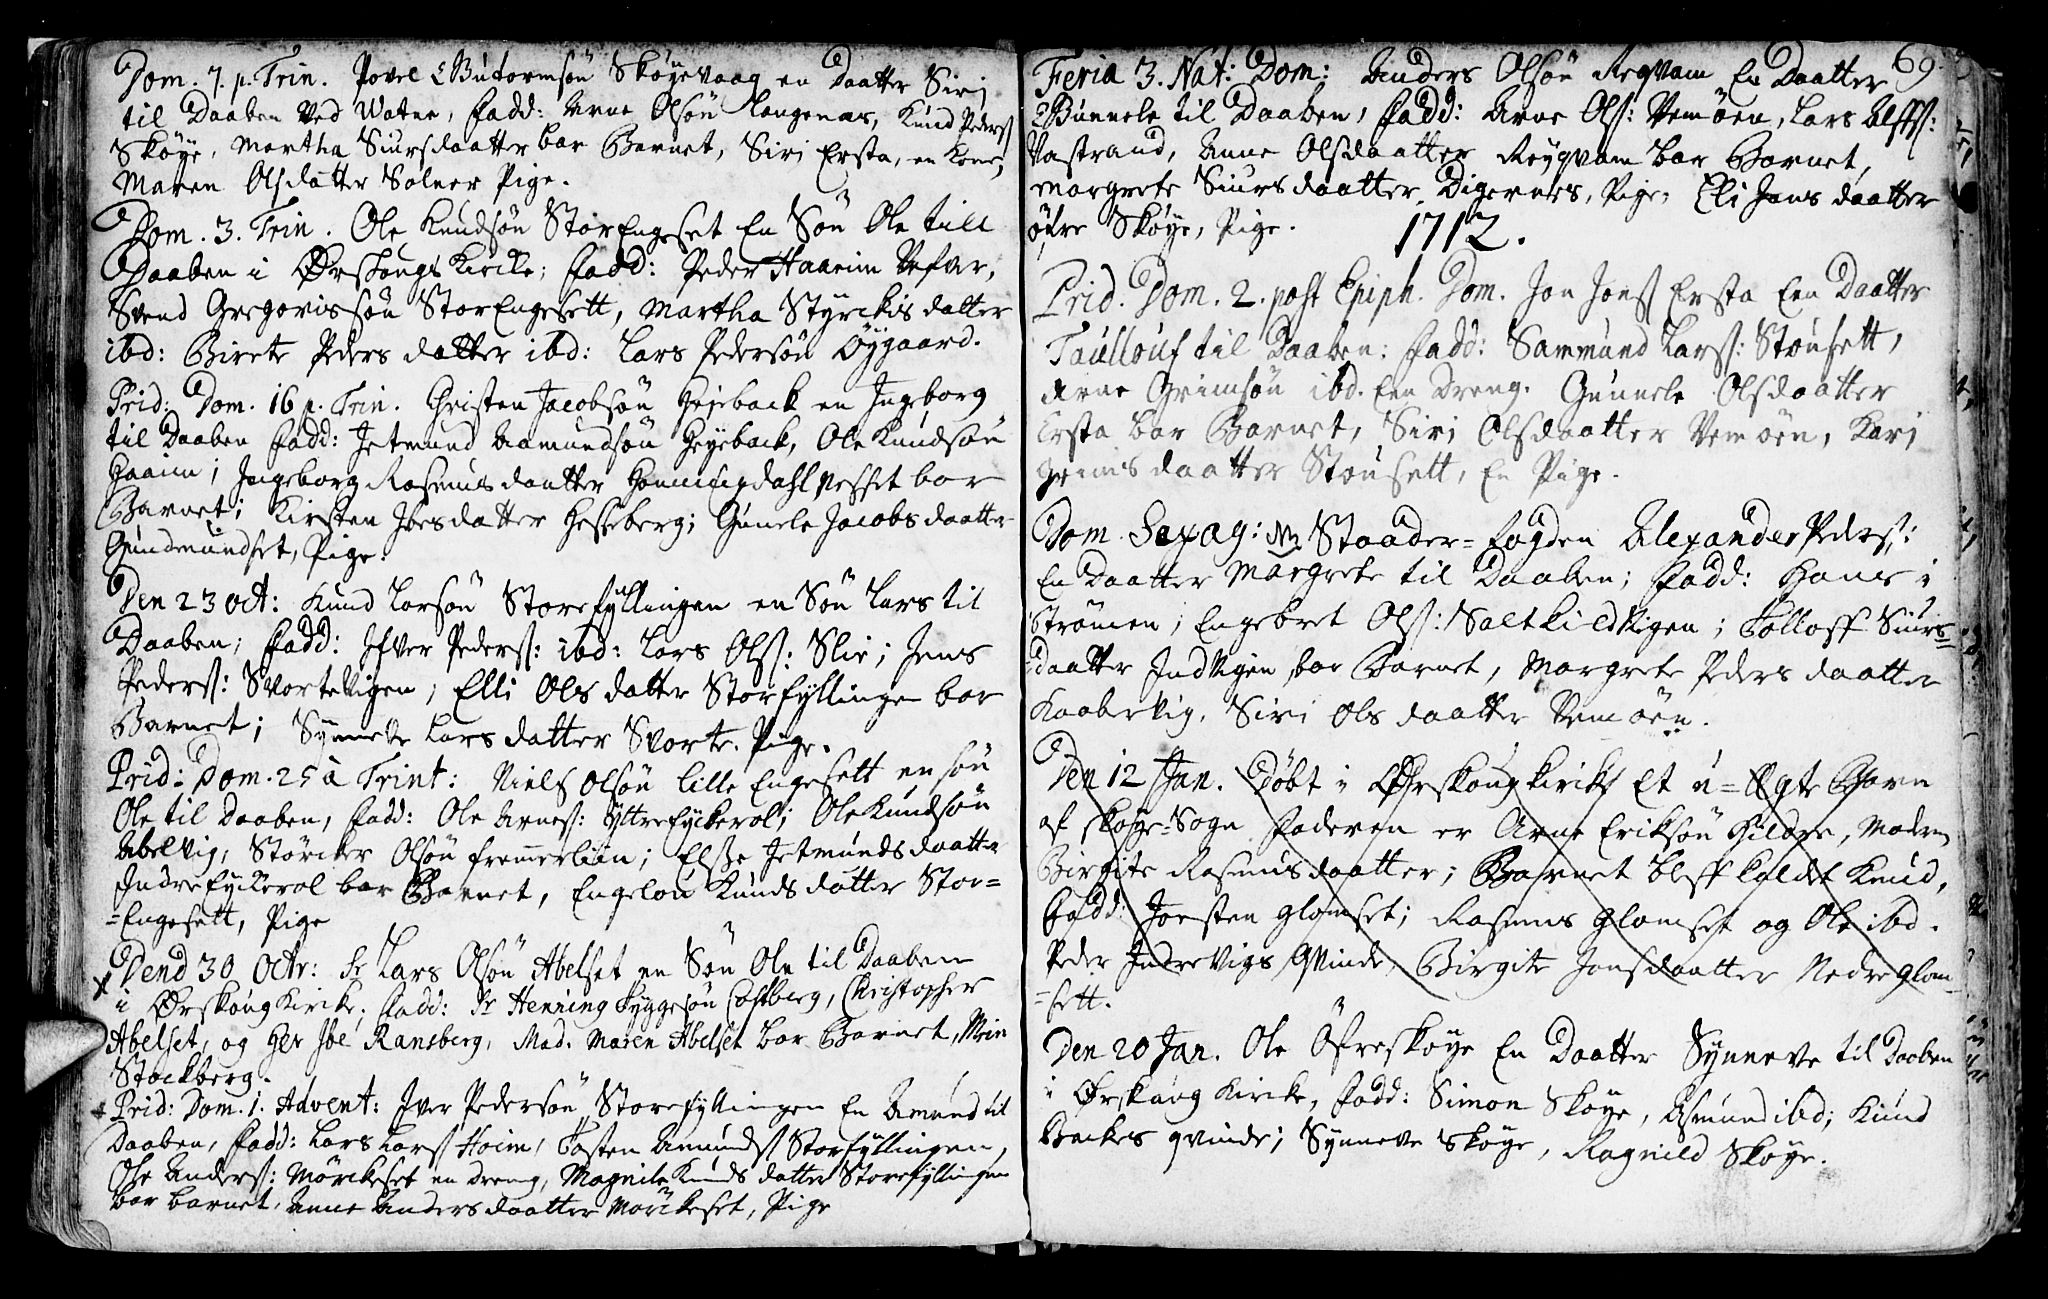 Dom. 7. p. Trin. Povel Gutormsön Skøyevaag en Daatter Siri
til Daaben Ved Watne, Fadd: Arne Olsön Langenæs, Knud Peders
Skøye, Martha Siursdaatter bar Barnet, Siri Ersta, en Kone,
Maren Olsdatter Solnør Pige.
Dom. 3. Trin. Ole Knudsön StorEngeset En Sön Ole till
Daaben i Ørskougs Kirke; Fadd: Peder Haarim
Svend Gregorissön StorEngesett, Martha Styrckis datter
ibd: Birete Peders datter ibd: Lars Pedersön Öygaard.
Prid: Dom. 16 p. Trin. Christen Jacobsön Heieback en Ingeborg
til Daaben Fadd: Jetmund Aamundsön Heyeback, Ole Knudsön
Haaim; Ingeborg Rasmus daatter Honningdahl Nesset bar
Barnet; Kirsten Ibes datter Hesseberg; Gunele Jacobs daatter
Gundmundset, Pige.
Den 23 Oct: Knud Larsön Storefyllingen en Sön Lars til
Daaben; Fadd: Ifver Peders: ibd: Lars Ols: Slir; Jens
Peders: Svortevigen; Elli Ols datter Storfyllingen bar
Barnet; Synneve Lars datter Svorte. Pige.
Prid: Dom. 25 à Trint: Niels Olsön Lille Engesett en sön
Ole til Daaben, Fadd: Ole Arnes: Yttrefyckerol; Ole Knudsön
Abelvig; Störcker Olsön fremerliin; Elsze Jetmunds daatter
Indrefyckerol bar Barnet, Engelou Knuds datter Stor=
=Engesett, Pige
x Dend 30 Octr: Sr Lars Olsön Abelset en Sön Ole til Daaben
i Ørskoug Kircke, Fadd: Sr Henning Tyggesön Castberg, Christopher
Abelset, og Hr Ibe Ransberg, Mad. Maren Abelset bar Barnet, Mrin
Stockberg.
+ Prid: Dom. 1. Advent: Iver Pedersön Storefyllingen En Amund til
Daaben, Fadd: Lars Lars Hoim, Tosten Amunds Storfyllingen,
Ole Anders: Mörckeset en dreng, Magnile Knuds datter Storefyllingen
bar barnet, Anne Anders daatter Mörckeset, Pige
69.
Feria 3. Nat: Dom: Anders Olsön Reqvam En Daatter
Gunnele til Daaben, Fadd: Arne Ols: Vemöen, Lars
Vastrand, Anne Olsdaatter Reyqvam bar Barnet,
Margrete Siurs daatter Digernes, Pige, Eli Jons daatter
öfre Skøye, Pige.
1712.
Prid. Dom. 2. post Epiph. Dom. Jon Jons Ersta Een Daatter
Taullouf til Daaben: Fadd: Sammund Lars: Stousett,
Arne Grimsön ibd. Een Dreng. Gunnele Olsdaatter
Ersta bar Barnet, Siri Olsdaatter Vemöen, Kari
Grims daatter Stousett, En Pige.
Dom. Sexag: Staader=fogden Alexander Peders:
En Daatter Margrete til Daaben; Fadd: Hans i
Strömen; Engebret Ols: SaltkieldVigen; Tolloff Siurs=
=daatter IndVigen bar Barnet, Margrete Peders daatter
Kaabervig, Siri Ols daatter Vemöen.
Den 12 Jan. Döbt i Ørskougkirke Et u=Ægte Barn
af Skøye=Sogn Faderen er Arne Eriksön Gildre, Modren
Birgite Rasmusdaatter; Barnet bleff kaldet Knud,
Fadd: Joesten Glomset; Rasmus Glomset og Ole ibd.
Peder Indrevigs Qvinde, Birgite Jonsdaatter Nedre Glom=
=sett.
Den 20 Jan. Ole Öfreskøye En Daatter Synneve til Daaben
i Ørskaug Kircke, Fadd: Simon Skøye, Asmund ibd; Knud
Backes qvinde; Synneve Skøye, Ragnild Skøye.